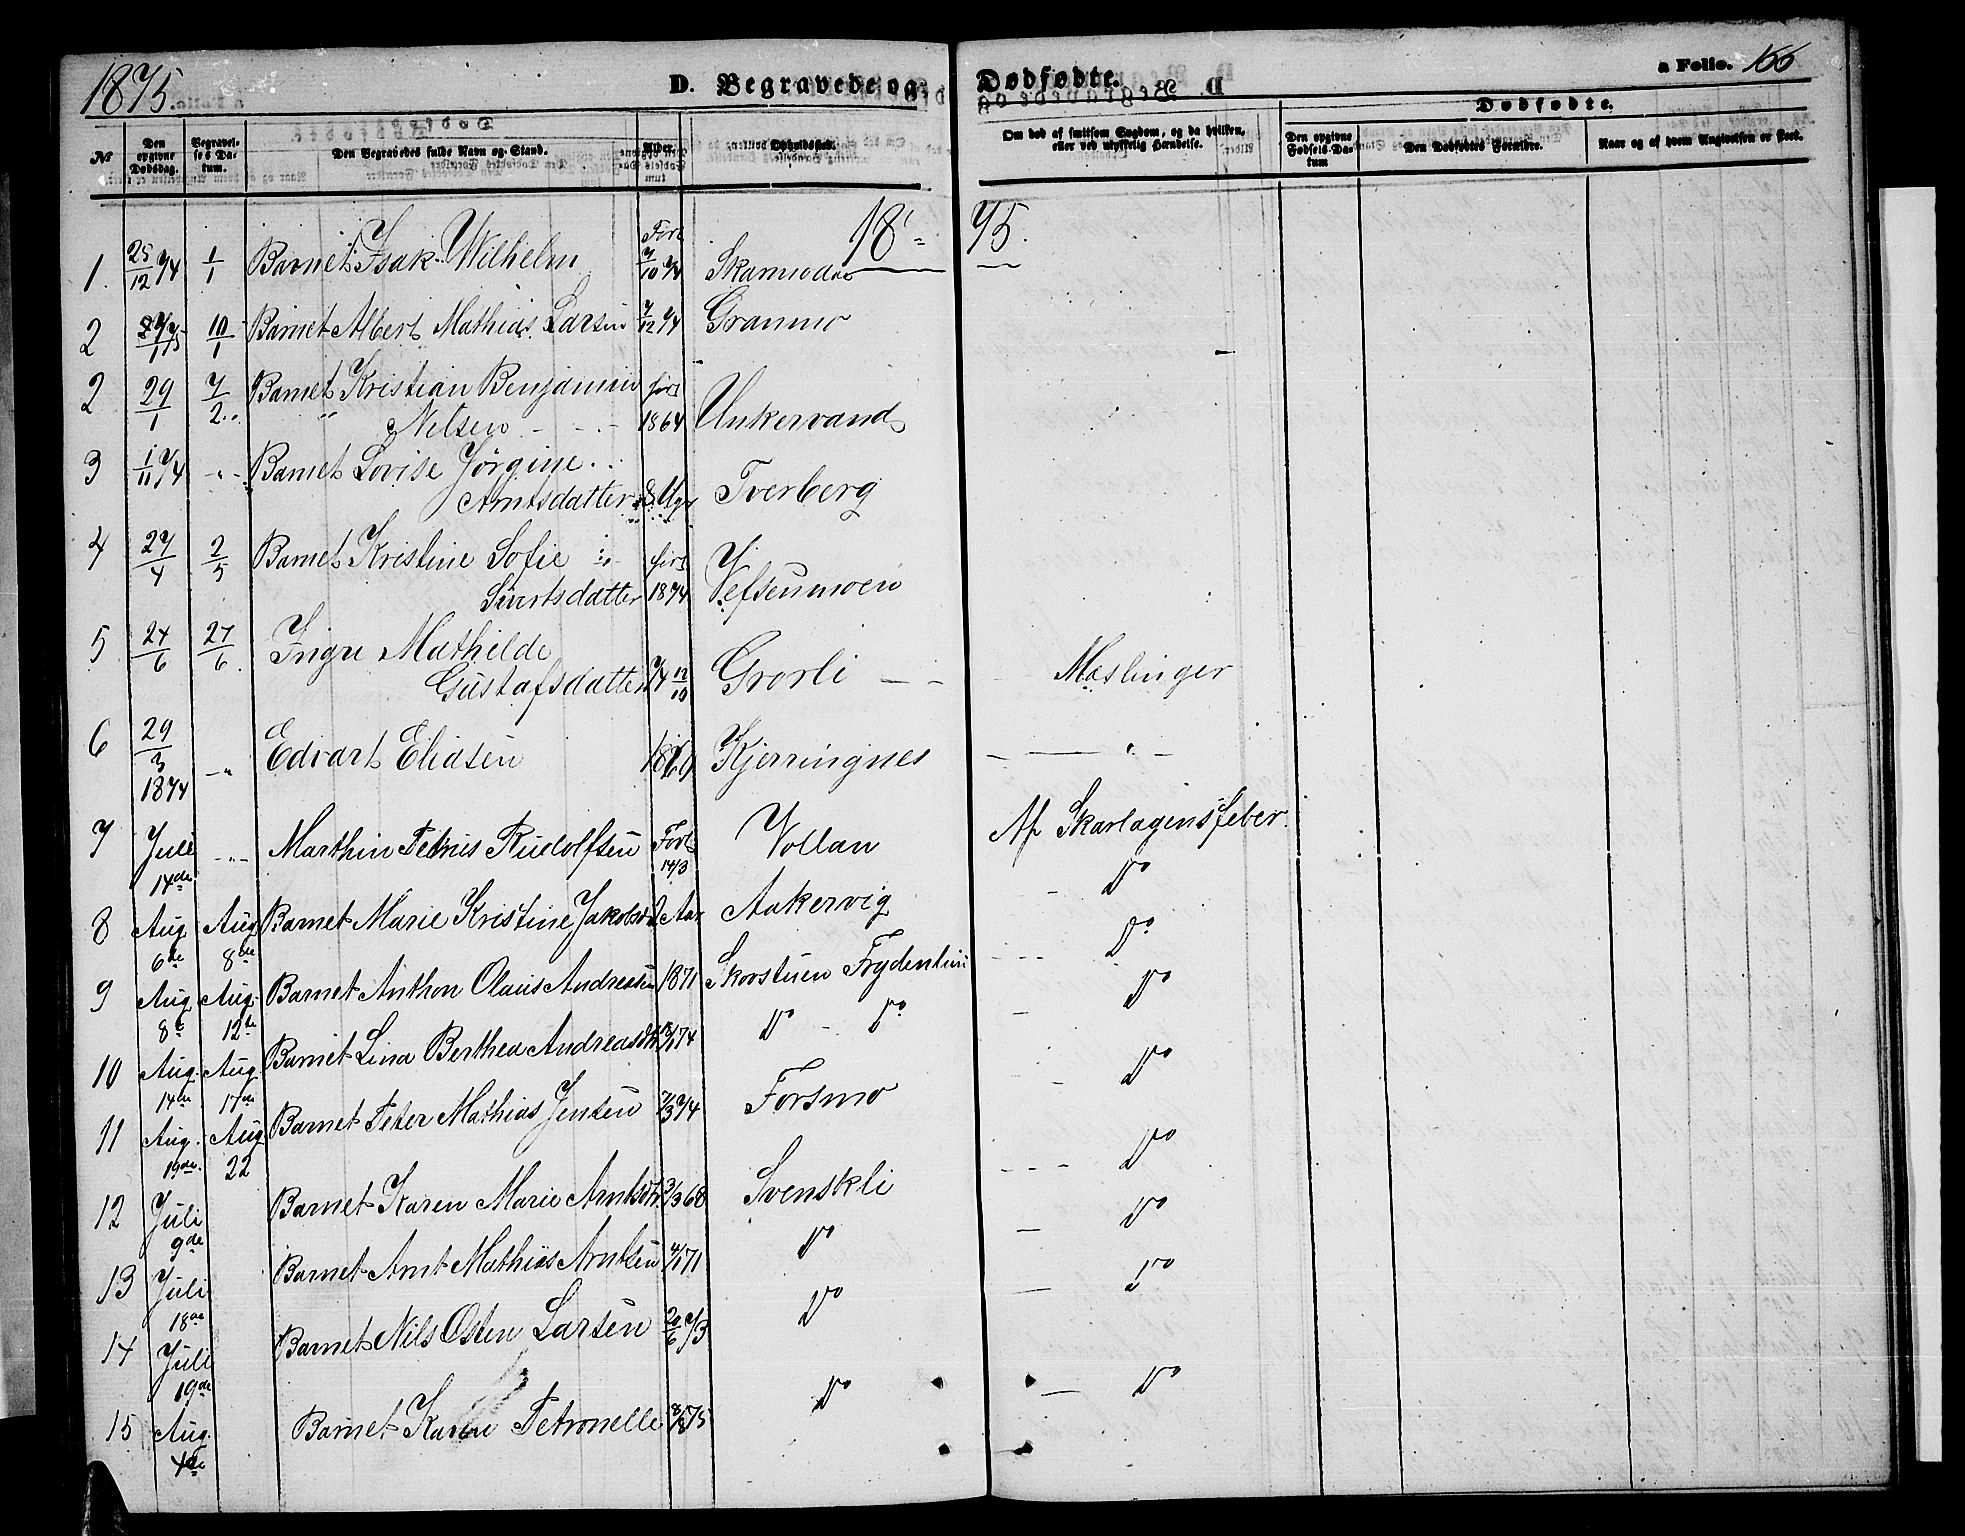 1875.
D. Begravede og Dødfødte.
a Folio. 166
Nr.
Den opgivne Dødsdag.
Begravelses Datum.
Den Begravedes fulde Navn og Stand.
Alder.
Opholdssted.
Om død af smitsom Sygdom, og da hvilken, eller ved ulykkelig Hændelse.
Dødfødte.
Den opgivne Fødsels-Datum
Den Dødfødtes Forældre.
Naar og af hvem Angivelsen er skeet.
18 75.
1. 25/12 74 1/1 Barnet Isak Wilhelm Født 7/10 74
2 10/1 Barnet Albert Mathias Larsen 7/12 74 Granmo
2 29/1 7/2 Barnet Kristian Benjamin født
Nilsen 1864 Unkervand
3 1/11 74 Barnet Lovise Jørgine
Arntsdatter 8 Ugr Tverberg
4 27/4 2/5 Barnet Kristine Sofie født
Sivertsdatter 1874 Vefsenmoen
5 24/6 27/6 Inger Mathilde
Gustafsdatter 74 12/10 Grorli Mæslinger
6 29/3 1874 Edvart Eliasen 1869 Kjerringnes
7 Juli 14de Marthin Petrus Rudolfsen Født 14/3 Vollan Af Skarlagensfeber.
8 Aug 6te Aug 8de Barnet Marie Kristine 2 Aar Aakervig Do
9 Aug 8de Aug. 12te Barnet Anthon Olaus Andreasen 1871 Skorstuen Frydenlund Do
10 Aug. 14de Aug. 17de Barnet Lina Berthea Andreasdtr 74 Do Do Do
11 Aug. 19de. Aug 22 Barnet Peter Mathias Jensen 7/3 74 Forsmo Do
12 Juli 9de Barnet Karen Marie Arntsdtr. 3/3 68 Svenskli Do
13 Juli 18de Barnet Arnt Mathias Arntsen 4/1 71 Do Do
14 Juli 19de Barnet Nils Osten Larsen 20/6 73 Do Do
15 Aug. 4de Barnet Karen Petronelle 75 Do Do